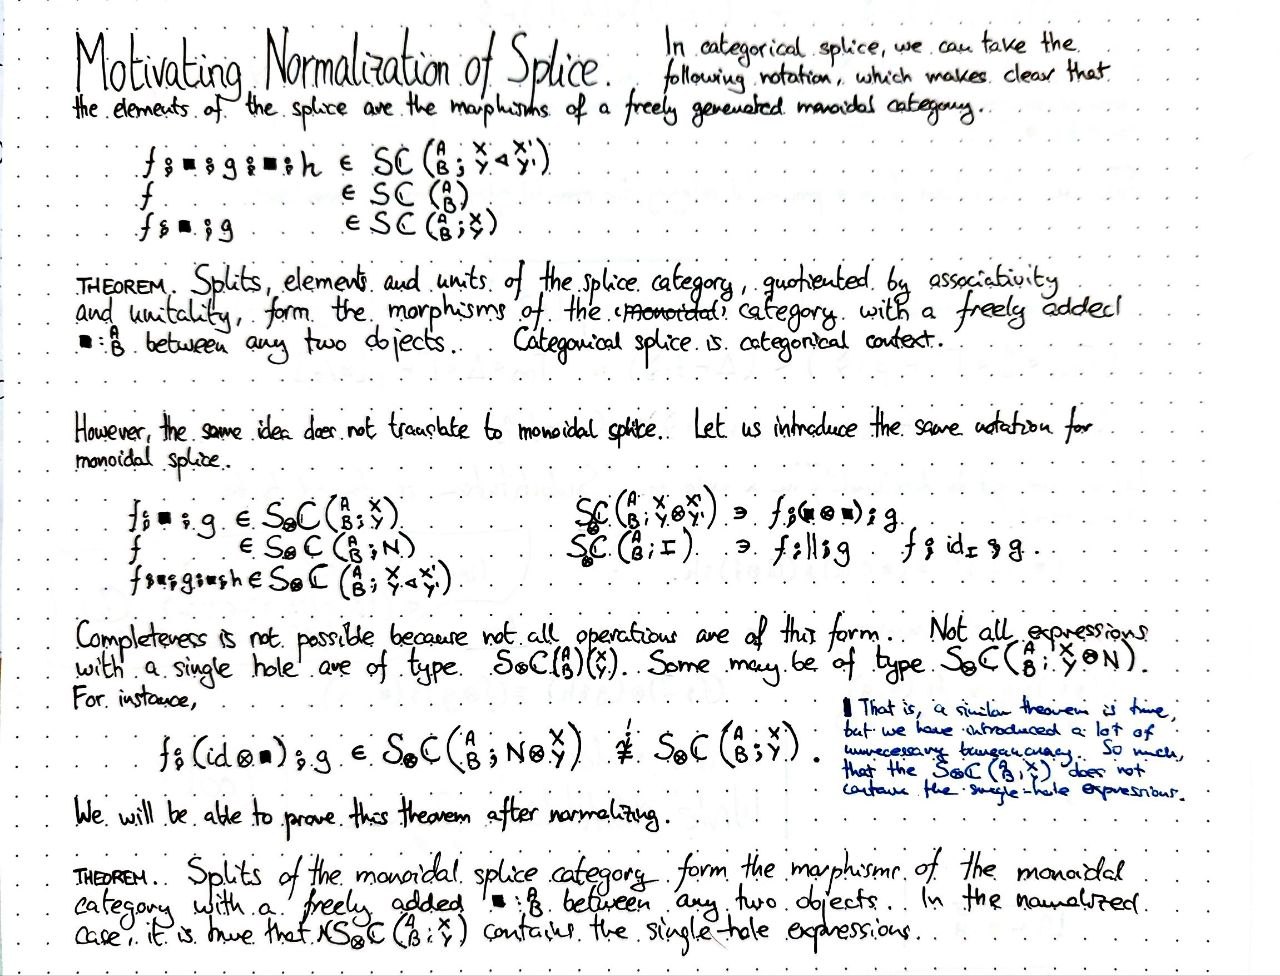 Motivating Normalization of Splice. In categorical splice, we can take the
following notation, which makes clear that
the elements of the splice are the morphisms of a freely generated monoidal category.
f⨟■⨟g⨟■⨟h ∈ Sℂ(A B; X Y ◁ X' Y')
f ∈ Sℂ(A B)
f⨟■⨟g ∈ Sℂ(A B; X Y)
THEOREM. Splits, elements and units of the splice category, quotiented by associativity
and unitality, form the morphisms of the (monoidal) category with a freely added
■: A B between any two objects. Categorical splice is categorical context.
However, the same idea does not translate to monoidal splice. Let us introduce the same notation for
monoidal splice.
f⨟■⨟g ∈ S⊗ℂ(A B; X Y) S⊗ℂ(A B; X Y ⊗ X' Y') ∋ f⨟(■⊗■)⨟g
f ∈ S⊗ℂ(A B; N) S⊗ℂ(A B; I) ∋ f⨟||⨟g f⨟id_I⨟g.
f⨟■⨟g⨟■⨟h ∈ S⊗ℂ(A B; X Y ◁ X' Y')
Completeness is not possible because not all operations are of this form. Not all expressions
with a single hole are of type S⊗ℂ(A B)(X Y). Some may be of type S⊗ℂ(A B; X Y ⊗ N).
For instance,
f⨟(id⊗■)⨟g ∈ S⊗ℂ(A B; N⊗X Y) ≇ S⊗ℂ(A B; X Y).
That is, a similar theorem is true,
but we have introduced a lot of
unnecessary bureaucracy. So much,
that the S⊗ℂ(A B; X Y) does not
contain the single-hole expressions.
We will be able to prove this theorem after normalizing.
THEOREM. Splits of the monoidal splice category form the morphisms of the monoidal
category with a freely added ■: A B between any two objects. In the normalized
case, it is true that NS⊗ℂ(A B; X Y) contains the single-hole expressions.